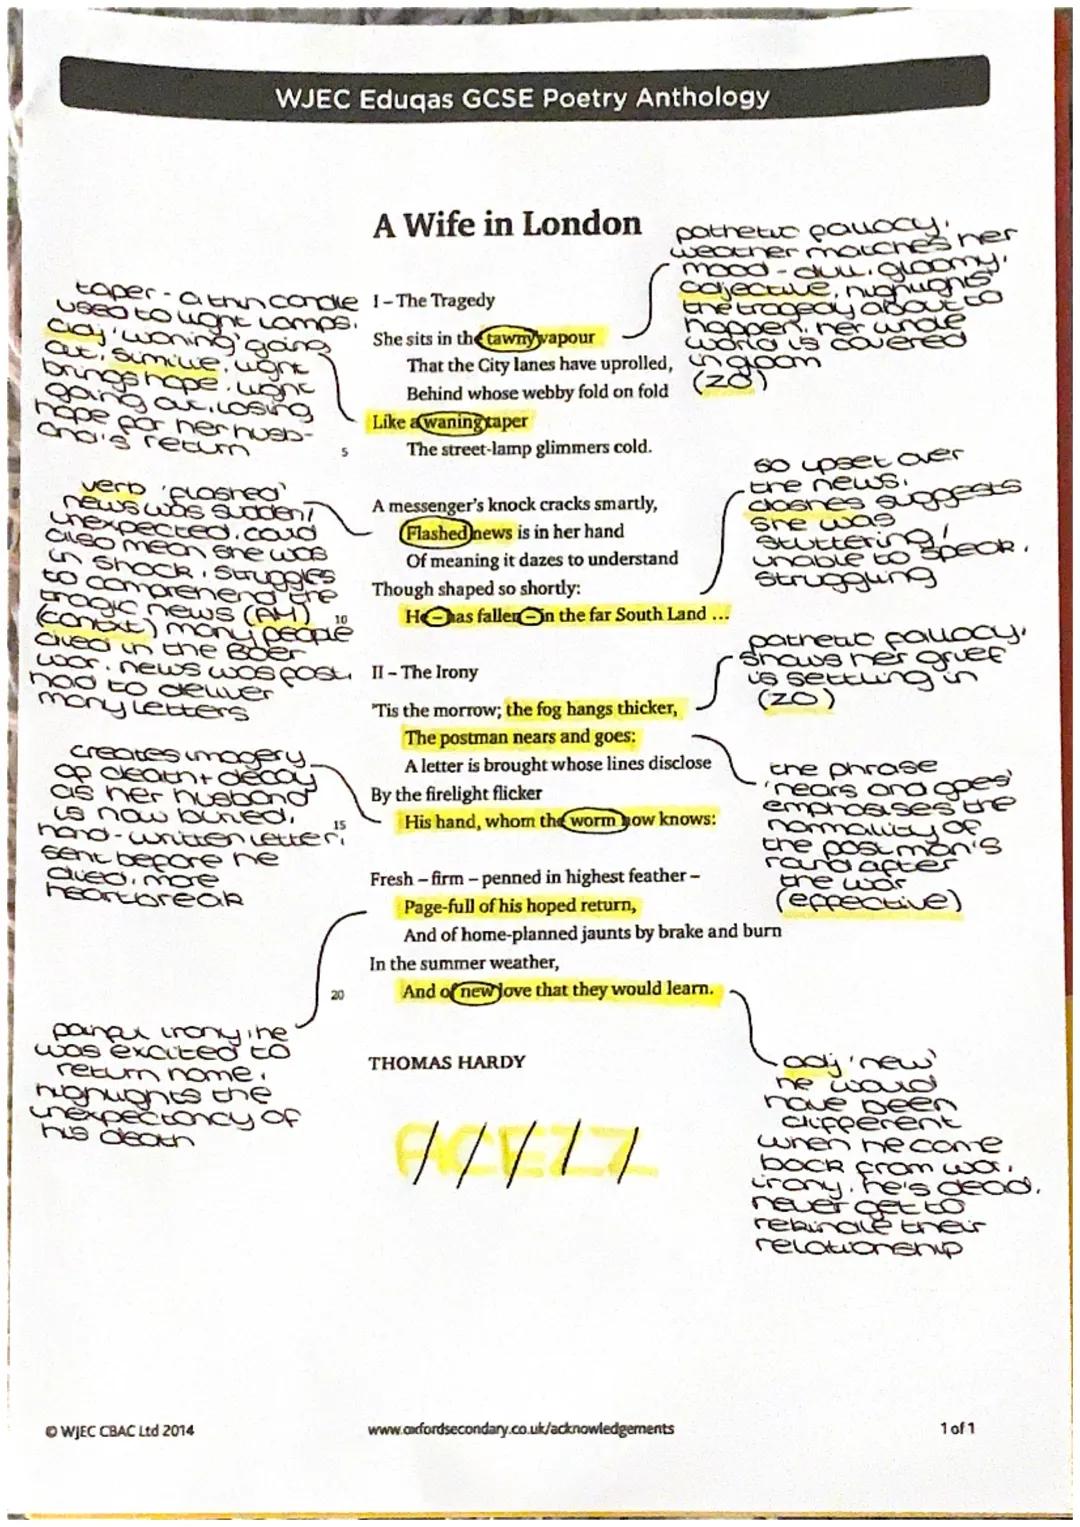 WJEC Eduqas GCSE Poetry Anthology
A Wife in London
pathetic fallacy.
weather matches her
mood - dull, gloomy.
adjective, highlights
the tragedy about to
happen. her whole
world is covered
in gloom
(ZO)
taper - a thin candle
used to light lamps.
adj 'waning' going
out. simile. light
brings hope. light
going out, losing
hope for her husb-
and's return
I – The Tragedy
She sits in the tawny vapour
That the City lanes have uprolled,
Behind whose webby fold on fold
Like a waning taper
5 The street-lamp glimmers cold.
verb 'flashed'
news was sudden/
unexpected. could
also mean she was
in shock. struggles
to comprehend the
tragic news (AH)
(context) many people
died in the Boer
war. news was post,
had to deliver
many letters
A messenger's knock cracks smartly,
Flashed news is in her hand
Of meaning it dazes to understand
Though shaped so shortly:
10 He – has fallen – in the far South Land ...
so upset over
the news.
dashes suggests
she was
stuttering/
unable to speak.
struggling
II – The Irony
'Tis the morrow; the fog hangs thicker,
The postman nears and goes:
A letter is brought whose lines disclose
By the firelight flicker
15 His hand, whom the worm now knows:
pathetic fallacy.
shows her grief
is settling in
(ZO)
creates imagery
of death + decay
as her husband
is now buried.
hand-written letter,
sent before he
died. more
heartbreak
the phrase
'nears and goes'
emphasises the
normality of
the postman's
round after
the war
(effective)
Fresh – firm – penned in highest feather –
Page-full of his hoped return,
And of home-planned jaunts by brake and burn
In the summer weather,
20 And of new love that they would learn.
painful irony, he
was excited to
return home.
highlights the
unexpectancy of
his death
THOMAS HARDY
adj 'new'
he would
have been
different
when he came
back from war.
irony. he's dead.
never get to
rekindle their
relationship
A/C/E/Z/Z/
© WJEC CBAC Ltd 2014
www.oxfordsecondary.co.uk/acknowledgements
1 of 1